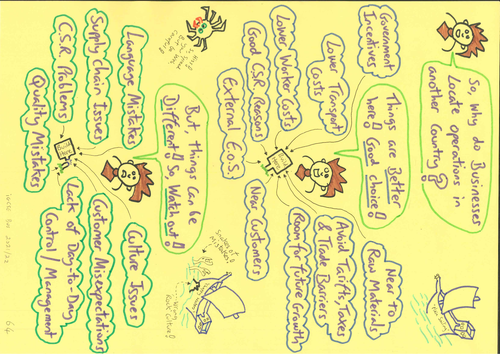 So, Why do Businesses
Locate operations in
another Country?
Government
Incentives
Lower Transport
Costs
Lower Worker Costs
Good C.S.R. Reasons
External E.o.S.
Things are Better
here! Good choice!
Near to
Raw Materials
Avoid Tariffs, Taxes
& Trade Barriers
Room for Future Growth
Near Customers
But, things can be
Different! So, Watch out!
Language Mistakes
Supply Chain Issues
C.S.R. Problems
Quality Mistakes
Culture Issues
Customer Misexpectations
Lack of Day-to-Day
Control / Management